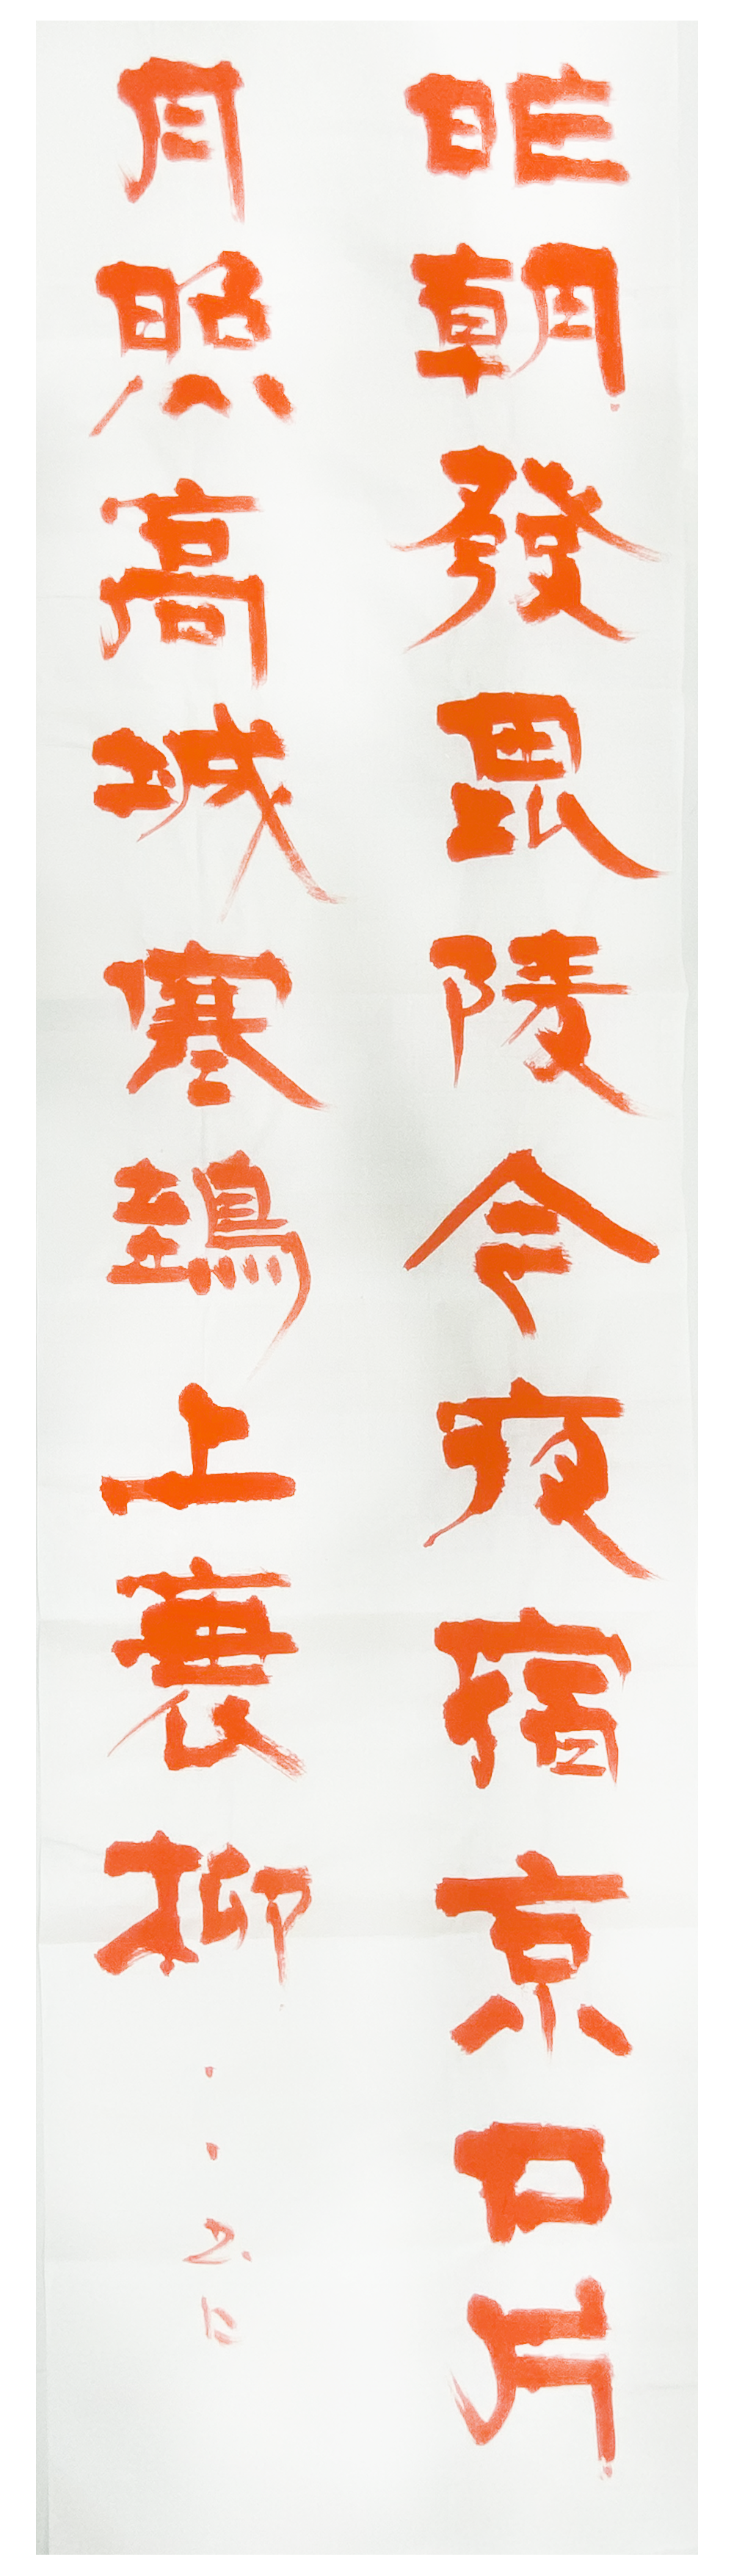 昨朝發毘陵今夜宿京口片
月照高城寒鵶上衰柳